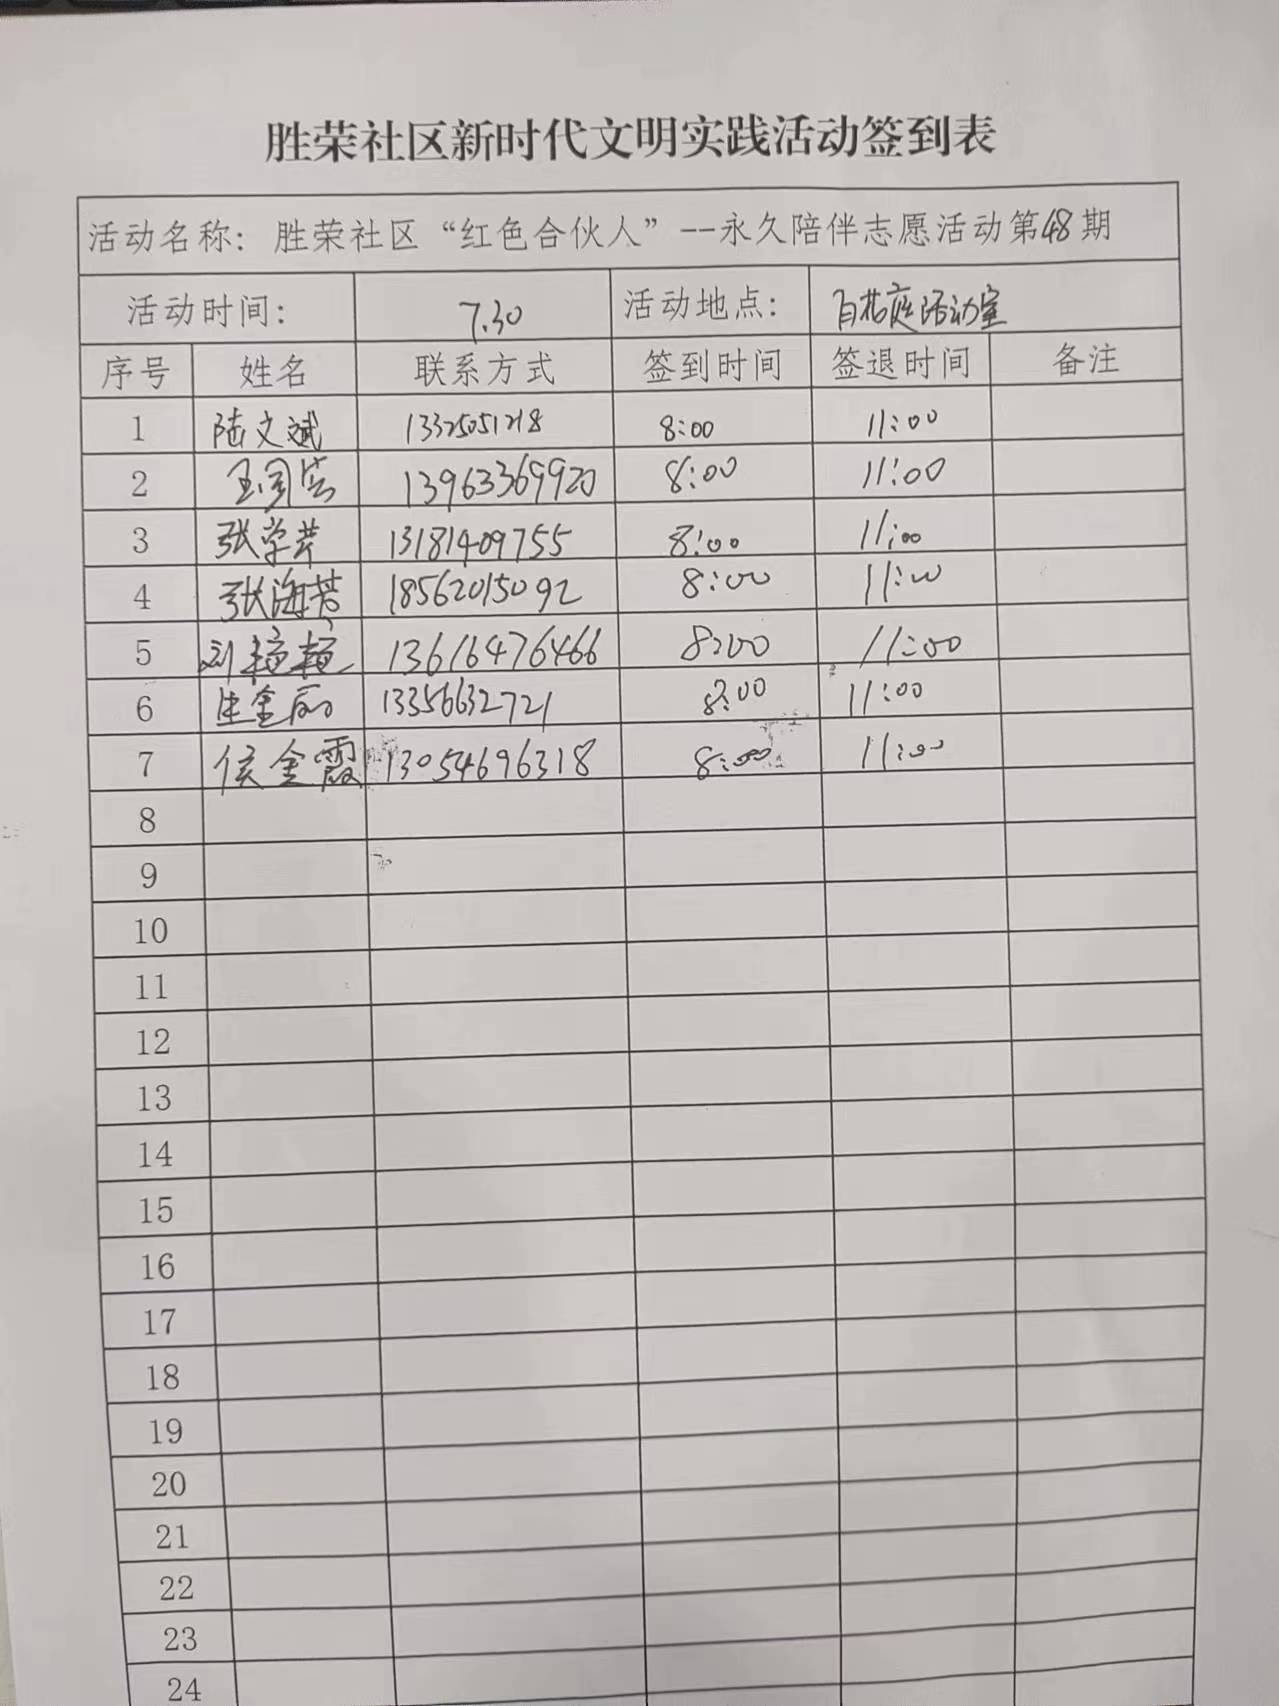 胜荣社区新时代文明实践活动签到表
活动名称：胜荣社区“红色合伙人”--永久陪伴志愿活动第48期
活动时间： 7.30 活动地点： 百花庭活动室
序号 姓名 联系方式 签到时间 签退时间 备注
1 陆文斌 13325051218 8:00 11:00
2 13963369920 8:00 11:00
3 张学芹 13181409755 8:00 11:00
4 张海芳 18562015092 8:00 11:00
5 刘 13616476466 8:00 11:00
6 金丽 13356632721 8:00 11:00
7 侯金霞 13054696318 8:00 11:00
8
9
10
11
12
13
14
15
16
17
18
19
20
21
22
23
24